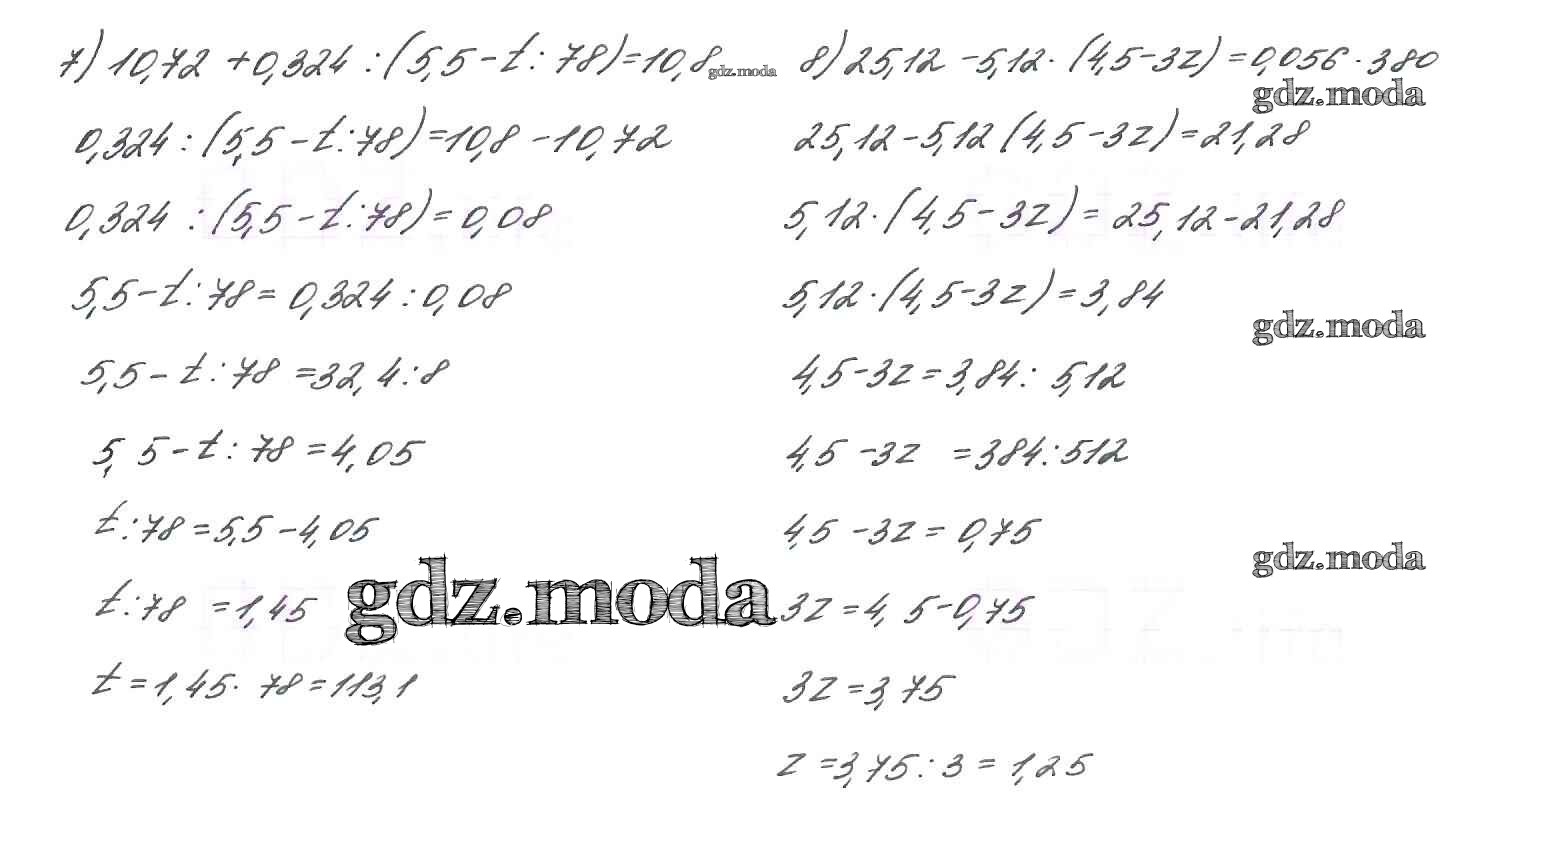 7) 10,72 + 0,324 : (5,5 - t : 78) = 10,8
gdz.moda
0,324 : (5,5 - t : 78) = 10,8 - 10,72
0,324 : (5,5 - t : 78) = 0,08
5,5 - t : 78 = 0,324 : 0,08
5,5 - t : 78 = 32,4 : 8
5,5 - t : 78 = 4,05
t : 78 = 5,5 - 4,05
t : 78 = 1,45
gdz.moda
t = 1,45 · 78 = 113,1
8) 25,12 - 5,12 · (4,5 - 3z) = 0,056 · 380
gdz.moda
25,12 - 5,12 (4,5 - 3z) = 21,28
5,12 · (4,5 - 3z) = 25,12 - 21,28
5,12 · (4,5 - 3z) = 3,84
gdz.moda
4,5 - 3z = 3,84 : 5,12
4,5 - 3z = 384 : 512
4,5 - 3z = 0,75
gdz.moda
3z = 4,5 - 0,75
3z = 3,75
z = 3,75 : 3 = 1,25